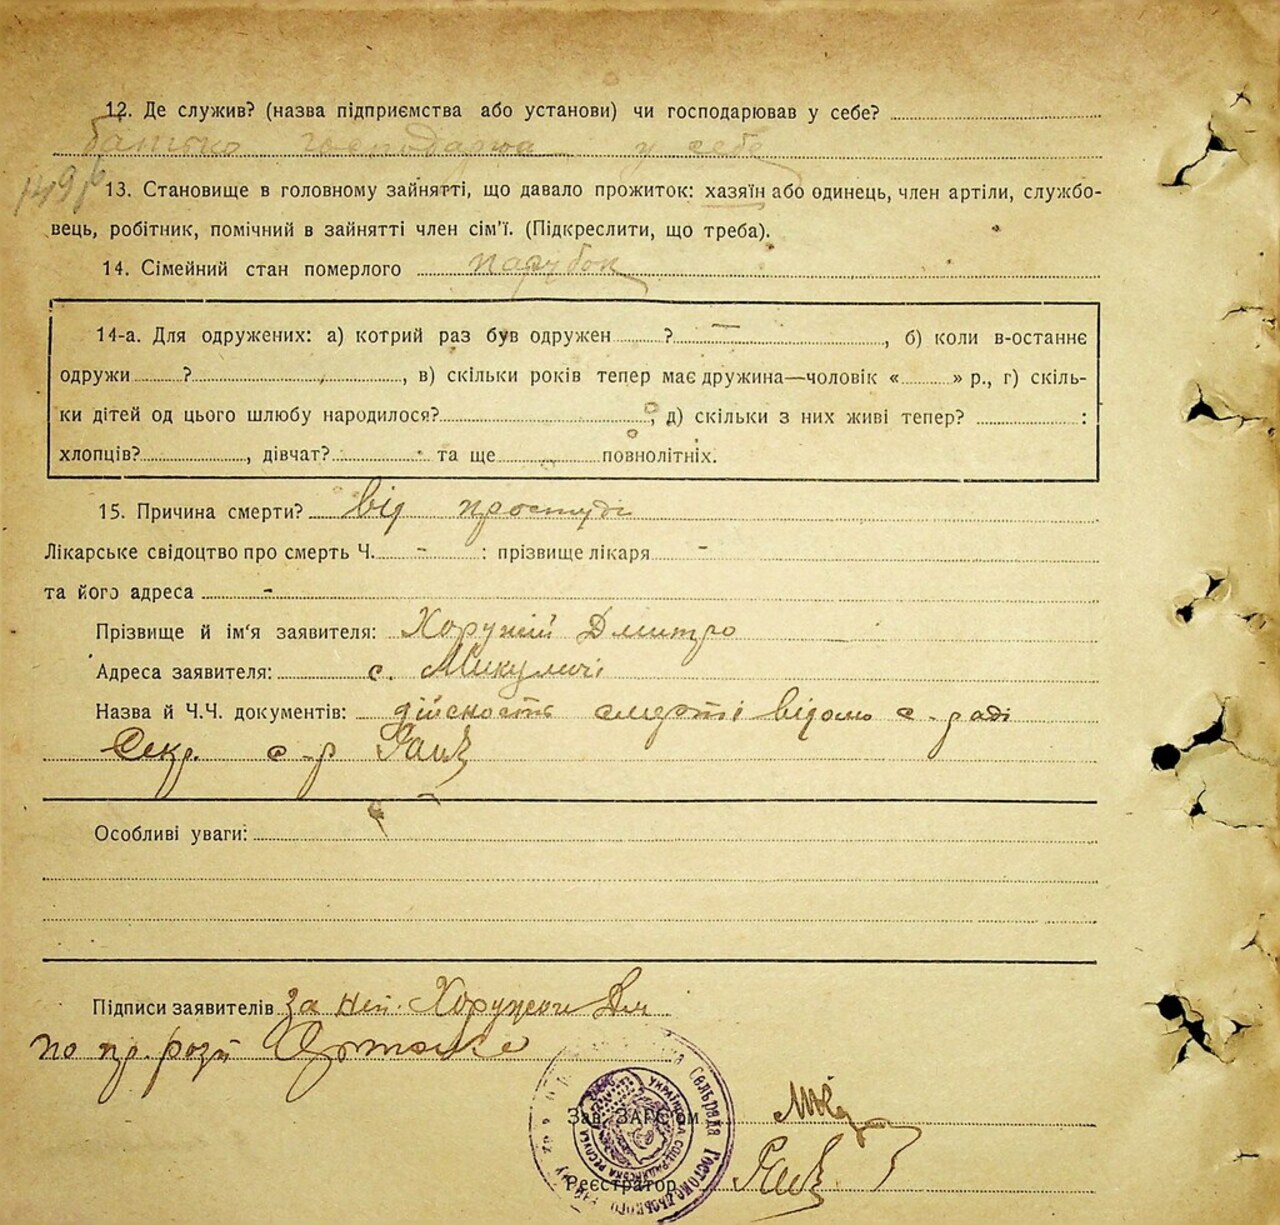 12. Де служив? (назва підприємства або установи) чи господарював у себе?
батько господарює у себе
149
13. Становище в головному зайнятті, що давало прожиток: хазяїн або одинець, член артіли, службо-
вець, робітник, помічний в зайнятті член сім'ї. (Підкреслити, що треба).
14. Сімейний стан померлого парубок
14-а. Для одружених: а) котрий раз був одружен ? — , б) коли в-останнє
одружи ? , в) скільки років тепер має дружина—чоловік « » р., г) скіль-
ки дітей од цього шлюбу народилося? , д) скільки з них живі тепер? :
хлопців? , дівчат? та ще повнолітніх.
15. Причина смерти? від простуді
Лікарське свідоцтво про смерть Ч. - : прізвище лікаря -
та його адреса -
Прізвище й ім'я заявителя: Хоружій Дмитро
Адреса заявителя: с. Микуличі
Назва й Ч.Ч. документів: дійсность смерті відомо с-раді
Секр. с-р
Особливі уваги:
Підписи заявителів за неп. Хоружого Дм
по
Зав. ЗАГС'ом
Реєстратор
Сельрада Гостомельського району
УКРАЇНСЬКА СОЦ. РАДЯНСЬКА РЕСПУБЛІКА